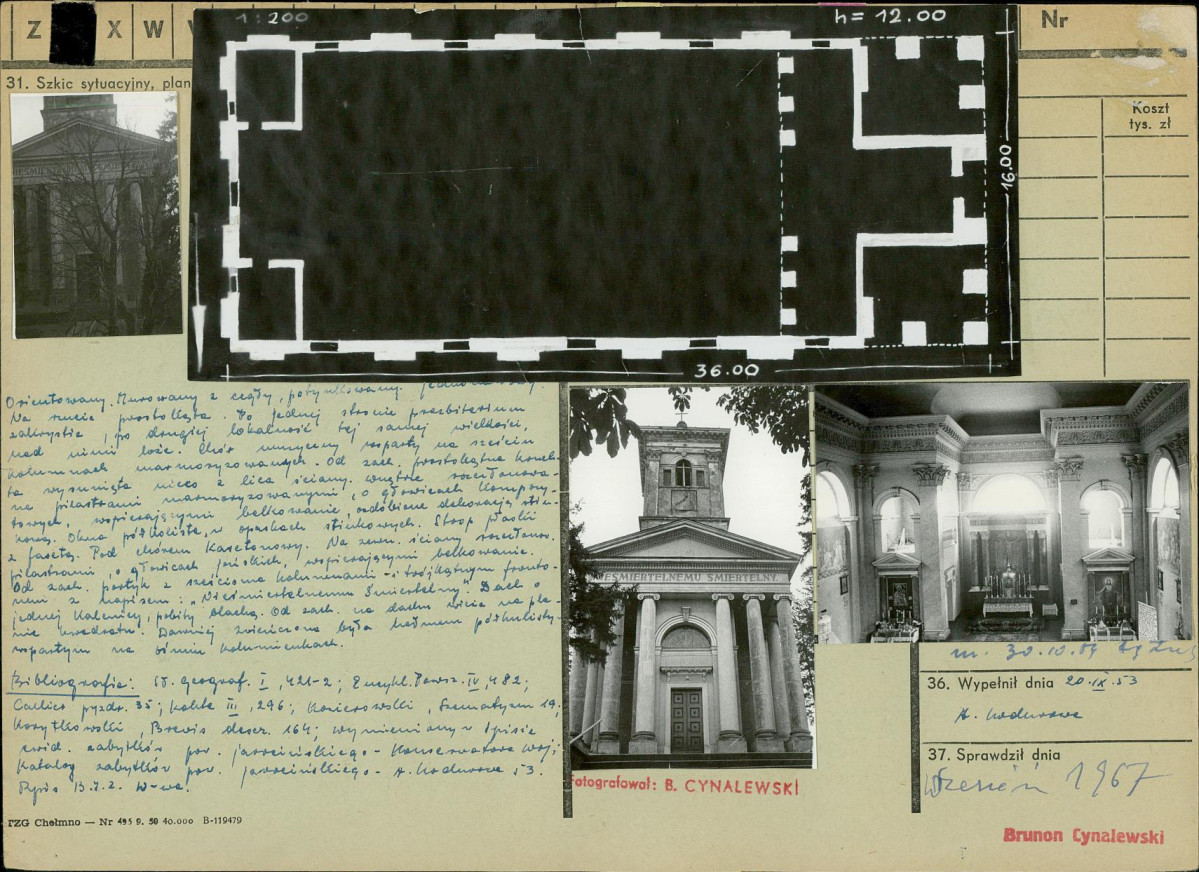 Z X W
1:200
h = 12.00
Nr
31. Szkic sytuacyjny, plan
Koszt
tys. zł
16.00
36.00
Orientowany. Murowany z cegły, potynkowany. jednonawowy.
Na rzucie prostokąta. Po jednej stronie prezbiterium
zakrystia, po drugiej lokalność tej samej wielkości,
nad nimi loże. Chór muzyczny wsparty na sześciu
kolumnach marmoryzowanych. Od zach. prostokątna
ta wysunięta nieco z lica ściany. Wnętrze
na pilastrami marmoryzowanymi, o głowicach kompozy-
towych, wspierającymi belkowanie, ozdobione dekoracją stiu-
kową. Okna półkoliste, w opaskach stiukowych. Strop płaski
z fasetą. Pod chórem kasetonowy. Na zewn. ściany
pilastrami, o głowicach jońskich, wspierającymi belkowanie.
Od zach. portyk z sześcioma kolumnami i trójkątnym fronto-
nem z napisem: "Nieśmiertelnemu Śmiertelny". Dach o
jednej kalenicy, pobity blachą. Od zach. na dachu wieża na pla-
nie kwadratu. Dawniej zwieńczona była hełmem półkulisty
wspartym na ośmiu kolumienkach.
Bibliografia: Sł. geograf. I, 421-2; Encykl. Powsz. IV, 482;
Callier pjzdr. 35; Kohte III, 296; Szematyzm 19,
Korytkowski, Brevis descr. 164; wymieniony w Spisie
ewid. zabytków pow. jarocińskiego - Konserwatora Woj;
Katalog zabytków pow. jarocińskiego - 53.
W-wa.
NIEŚMIERTELNEMU ŚMIERTELNY.
Fotografował: B. CYNALEWSKI
36. Wypełnił dnia 20.IX.53
37. Sprawdził dnia
Wrzesień 1967
Brunon Cynalewski
PZG Chełmno — Nr 495 9. 50 40.000 B-119479